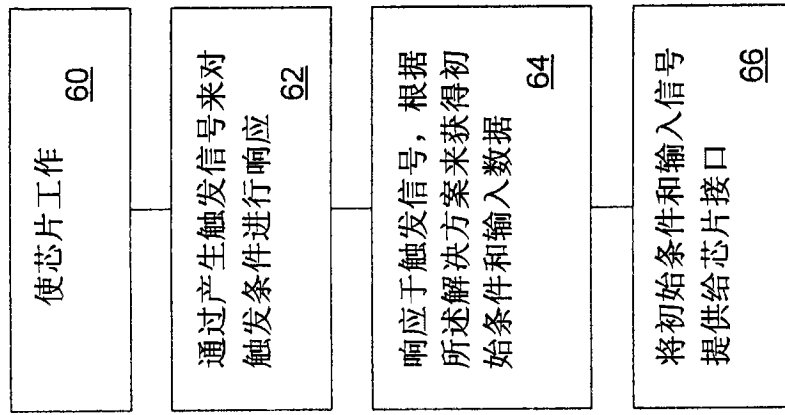 使芯片工作
60
通过产生触发信号来对
触发条件进行响应
62
响应于触发信号，根据
所述解决方案来获得初
始条件和输入数据
64
将初始条件和输入信号
提供给芯片接口
66